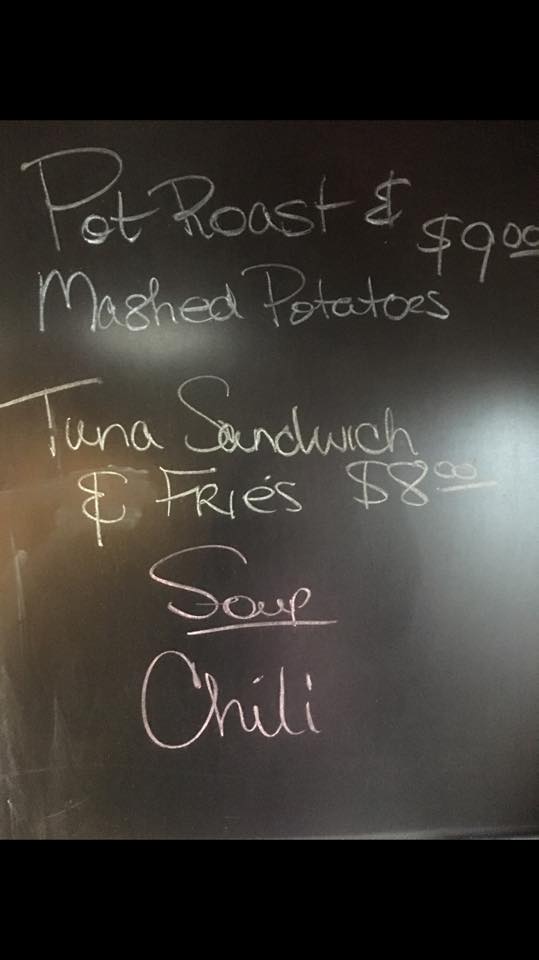 Pot Roast & $9.00
Mashed Potatoes
Tuna Sandwich
& Fries $8.00
Soup
Chili